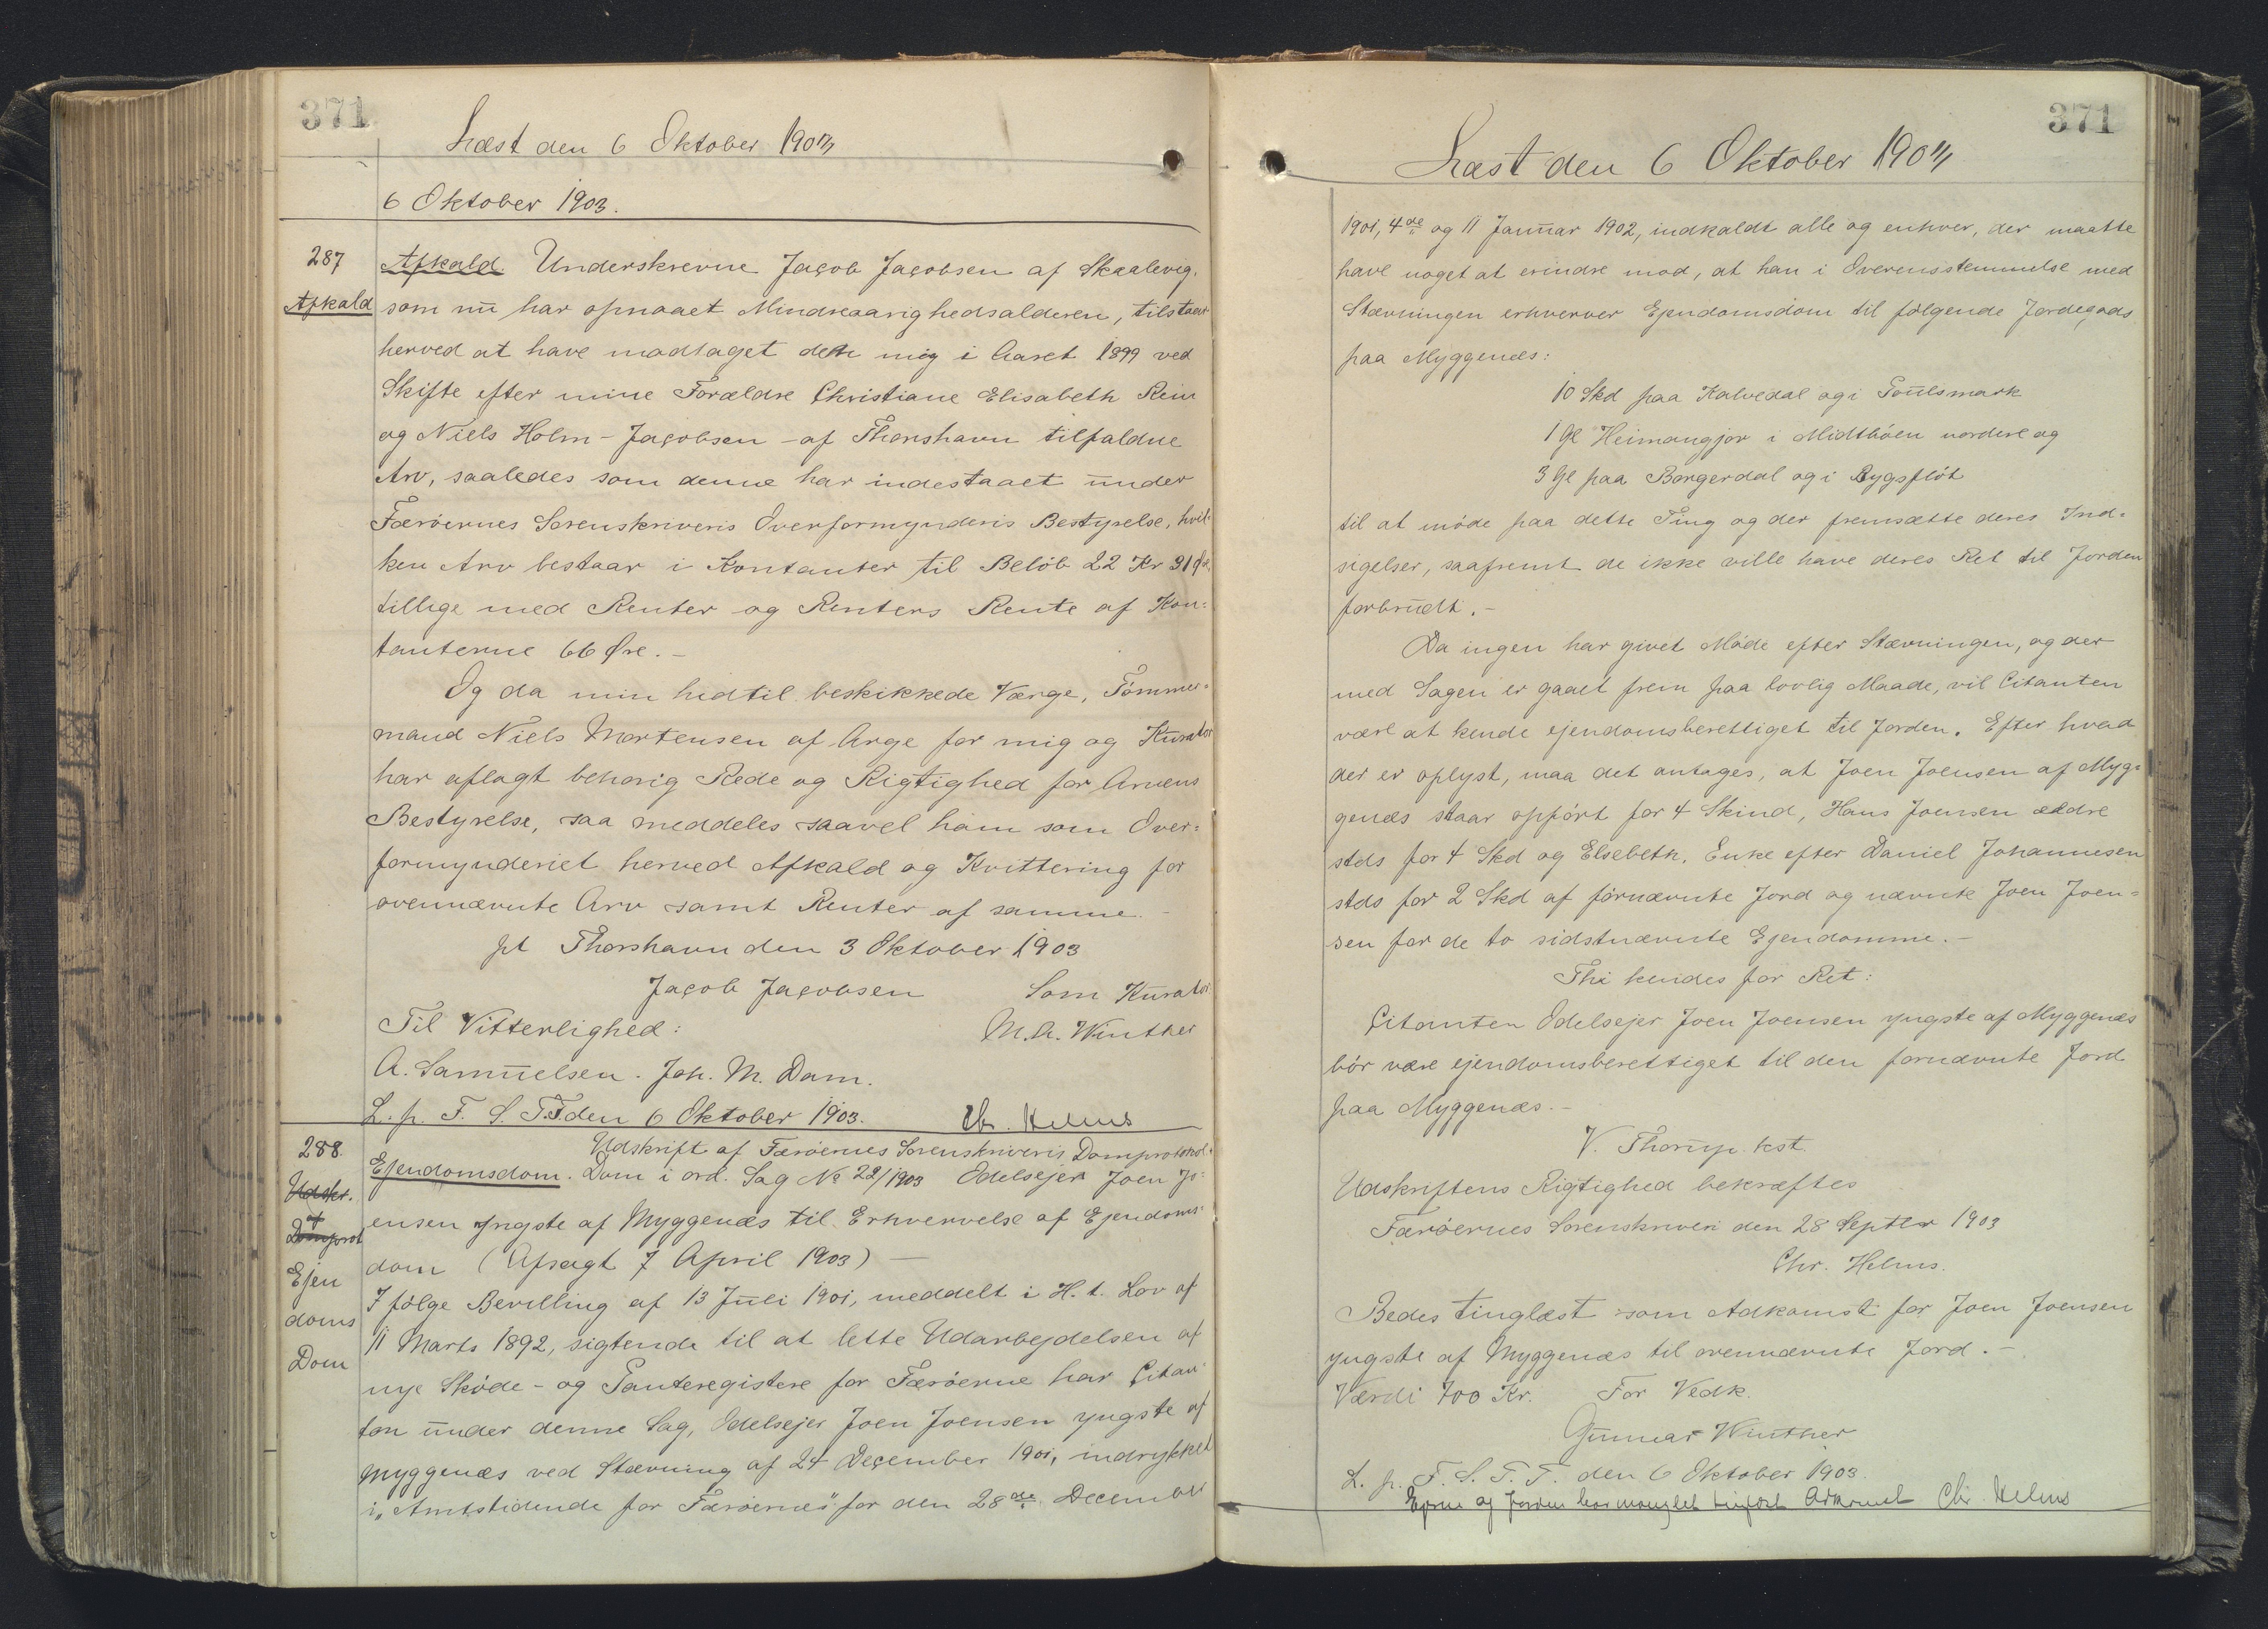 371
Læst den 6 Oktober 1903
6 Oktober 1903.
287
Afkald
Afkald. Underskrevne Jacob Jacobsen af Skaalevig,
som nu har opnaaet Mindreaarighedsalderen, tilstaar
herved at have modtaget den mig i Aaret 1899 ved
Skifte efter mine Forældre Christiane Elisabeth Rein
og Niels Holm-Jacobsen - af Thorshavn tilfaldne
Arv, saaledes som denne har indestaaet under
Færöernes Sorenskriveris Overformynderis Bestyrelse, hvil-
ken Arv bestaar i Kontanter til Belöb 22 Kr 31 Ør.
tillige med Renter og Renters Rente af Kon-
tanterne 66 Øre. -
Og da min hidtil beskikkede Værge, Tömmer-
mand Niels Mortensen af Arge for mig og Kurator
har aflagt behörig Rede og Rigtighed for Arvens
Bestyrelse, saa meddeles saavel ham som Over-
formynderiet herved Afkald og Kvittering for
ovennævnte Arv samt Renter af samme. -
pt Thorshavn den 3 Oktober 1903
Jacob Jacobsen Som Kurator
Til Vitterlighed: M.A. Winther
A. Samuelsen. Joh. M. Dam.
L. p. F. S. T.T den 6 Oktober 1903. Chr. Helms
288.
Udskr.
af
Domprot
Ejen
doms
Dom
Udskrift af Færöernes Sorenskriveris Domprotokol.
Ejendomsdom. Dom i ord. Sag No 22/1903 Odelsejer Joen Jo-
ensen yngste af Myggenæs til Erhvervelse af Ejendoms-
dom (Afsagt 7 April 1903) -
I fölge Bevilling af 13 Juli 1901, meddelt i H. t. Lov af
11 Marts 1892, sigtende til at lette Udarbejdelsen af
nye Sköde- og Panteregistere for Færöerne har Citan-
ten under denne Sag, Odelsejer Joen Joensen yngste af
Myggenæs ved Stævning af 24 December 1901, indrykket
i "Amtstidende for Færöerne" for den 28de December
371
Læst den 6 Oktober 1903
1901, 4de og 11 Januar 1902, indkaldt alle og enhver, der maatte
have noget at erindre mod, at han i Overensstemmelse med
Stævningen erhverver Ejendomsdom til fölgende Jordegods
paa Myggenæs:
10 Skd paa Kalvedal og i Toulsmark
1 Gl Heimangjor i Midtböen nordere og
3 Gl paa Borgerdal og i Rygsflöt
til at möde paa dette Ting og der fremsætte deres Ind-
sigelser, saafremt de ikke ville have deres Ret til Jorden
forbrudt. -
Da ingen har givet Möde efter Stævningen, og der
med Sagen er gaaet frem paa lovlig Maade, vil Citanten
være at kende ejendomsberettiget til Jorden. Efter hvad
der er oplyst, maa det antages, at Joen Joensen af Myg-
genæs staar opfört for 4 Skind, Hans Joensen ældre
stds for 4 Skd og Elsebeth, Enke efter Daniel Johannesen
stds for 2 Skd af förnævnte Jord og nævnte Joen Joen-
sen for de to sidstnævnte Ejendomme. -
Thi kendes for Ret:
Citanten Odelsejer Joen Joensen yngste af Myggenæs
bör være ejendomsberettiget til den fornævnte Jord
paa Myggenæs. -
V. Thorup kst.
Udskriftens Rigtighed bekræftes
Færöernes Sorenskriveri den 28 Septbr 1903
Chr. Helms.
Bedes tinglæst som Adkomst for Joen Joensen
yngste af Myggenæs til ovennævnte Jord. -
Værdi 700 Kr. For Vedk.
Gunnar Winther
L. p. F. S. T. T. den 6 Oktober 1903.
af Jorden har manglet Adkomst Chr. Helms